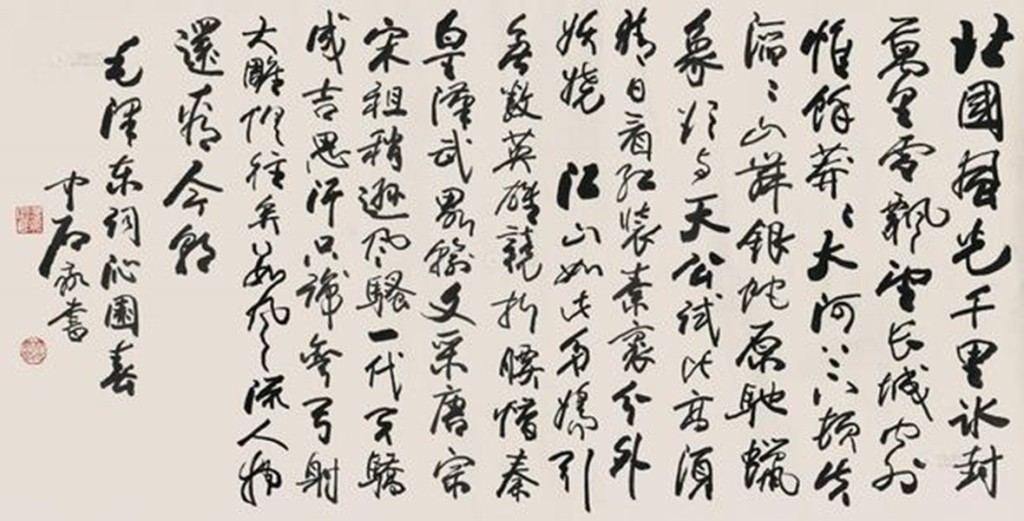 北國風光千里冰封
萬里雪飄望長城內外
惟餘莽〻大河上下頓失
滔〻山舞銀蛇原馳蠟
象欲與天公試比高須
晴日看紅裝素裹分外
妖嬈 江山如此多嬌引
無數英雄競折腰惜秦
皇漢武略輸文采唐宗
宋祖稍遜風騷一代天驕
成吉思汗只識彎弓射
大雕俱往矣數風流人物
還看今朝
毛澤東詞沁園春
中石敬書